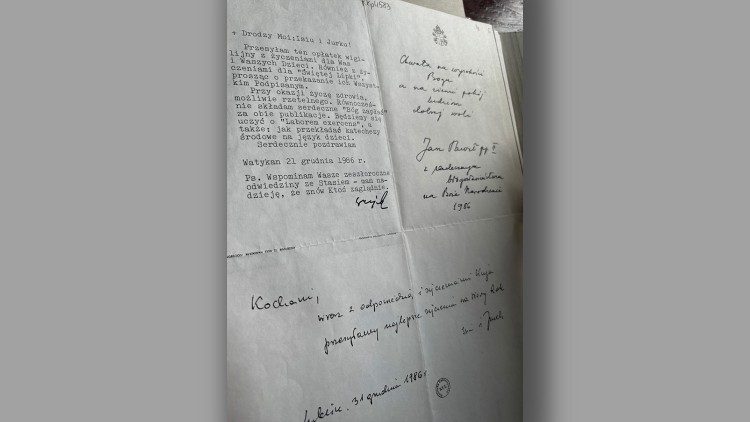 KKpl/583
+ Drodzy Moi: Isiu i Jurku!
Przesyłam ten opłatek wigi-
lijny z życzeniami dla Was
i Waszych Dzieci. Również z ży-
czeniami dla "Świętej Lipki",
prosząc o przekazanie ich Wszyst-
kim Podpisanym.
Przy okazji życzę zdrowia,
możliwie rzetelnego. Równocześ-
nie składam serdeczne "Bóg zapłać"
za obie publikacje. Będziemy się
uczyć o "Laborem exercens", a
także: jak przekładać katechezy
środowe na język dzieci.
Serdecznie pozdrawiam
Watykan 21 grudnia 1986 r.
Ps. Wspominam Wasze zeszłoroczne
odwiedziny ze Stasiem - mam na-
dzieję, że znów Ktoś zaglądnie.
Chwała na wysokości
Bogu
a na ziemi pokój
ludziom
dobrej woli
Jan Paweł pp II
z serdecznym
błogosławieństwem
na Boże Narodzenie
1986
Kochani,
wraz z odpowiedzią i życzeniami Wuja
przesyłamy najlepsze życzenia na Nowy Rok
Lublin, 31 grudnia 1986 r.